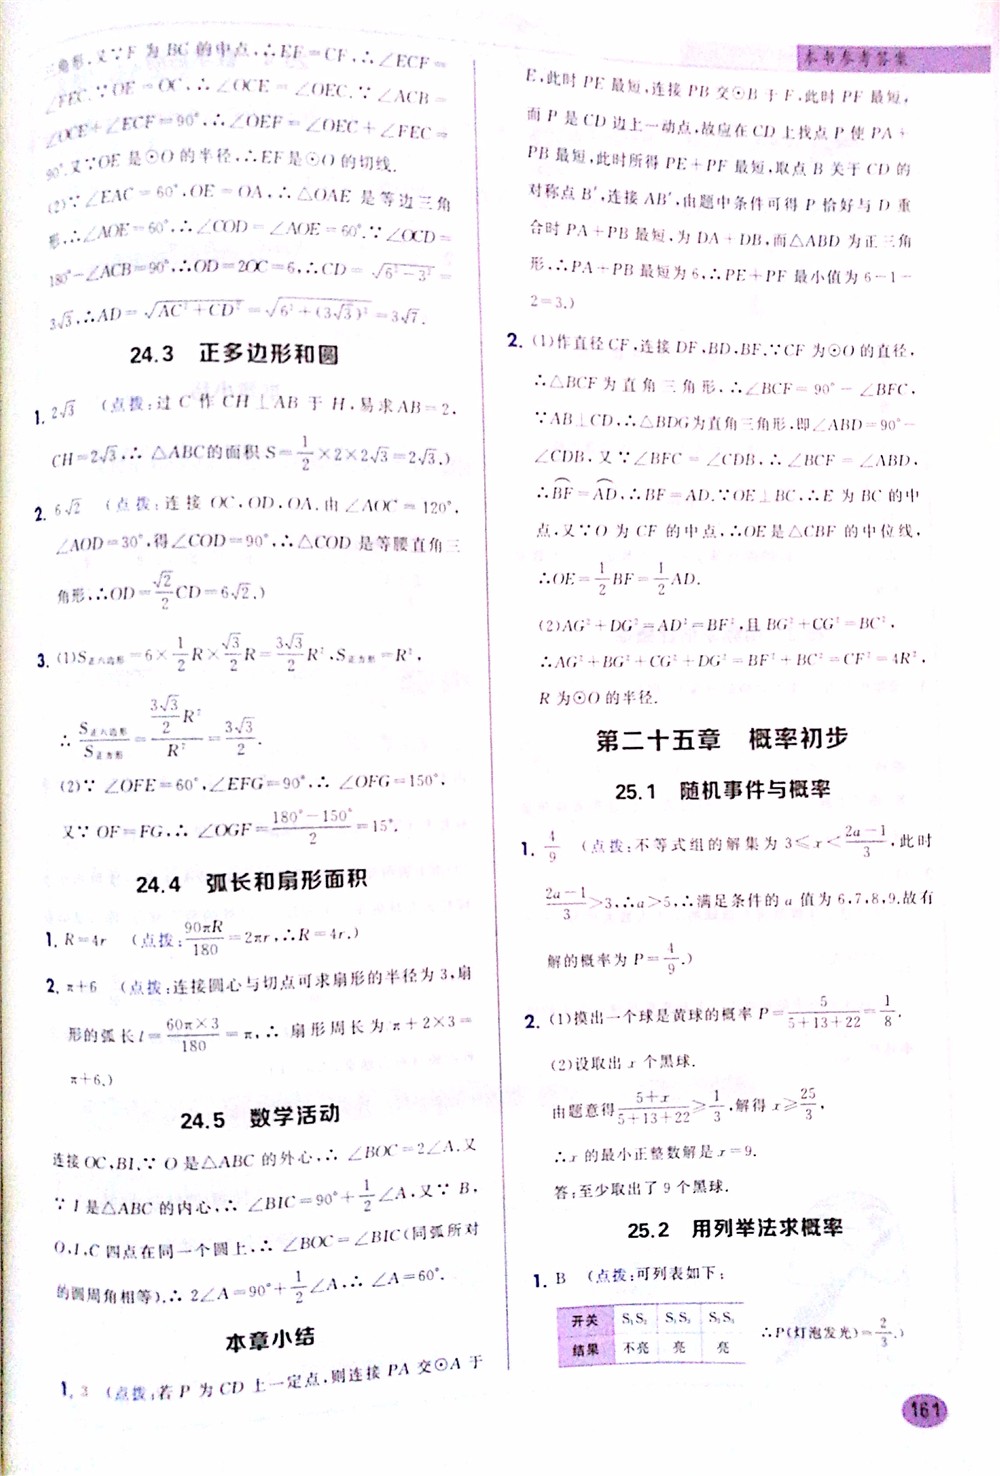 本书参考答案
三角形,又∵F 为 BC 的中点,∴EF=CF,∴∠ECF=
∠FEC.∵OE=OC,∴∠OCE=∠OEC.∵∠ACB=
∠OCE+∠ECF=90°,∴∠OEF=∠OEC+∠FEC=
90°.又∵OE是⊙O的半径,∴EF是⊙O的切线.
(2)∵∠EAC=60°,OE=OA,∴△OAE 是等边三角
形,∴∠AOE=60°,∴∠COD=∠AOE=60°.∵∠OCD=
180°-∠ACB=90°,∴OD=2OC=6,∴CD=√(6²-3²)=
3√3,∴AD=√(AC²+CD²)=√(6²+(3√3)²)=3√7.
24.3 正多边形和圆
1. 2√3 (点拨:过 C 作 CH⊥AB 于 H,易求AB=2,
CH=2√3,∴△ABC的面积 S=1/2×2×2√3=2√3.)
2. 6√2 (点拨:连接 OC,OD,OA.由∠AOC=120°,
∠AOD=30°,得∠COD=90°,∴△COD 是等腰直角三
角形,∴OD=√2/2CD=6√2.)
3. (1)S正六边形=6×1/2R×√3/2R=3√3/2R²,S正方形=R²,
∴S正六边形/S正方形=(3√3/2R²)/R²=3√3/2.
(2)∵∠OFE=60°,∠EFG=90°,∴∠OFG=150°,
又∵OF=FG,∴∠OGF=(180°-150°)/2=15°.
24.4 弧长和扇形面积
1. R=4r (点拨:90πR/180=2πr,∴R=4r.)
2. π+6 (点拨:连接圆心与切点可求扇形的半径为3,扇
形的弧长l=60π×3/180=π,∴扇形周长为π+2×3=
π+6.)
24.5 数学活动
连接OC,BI.∵O是△ABC的外心,∴∠BOC=2∠A.又
∵I是△ABC的内心,∴∠BIC=90°+1/2∠A,又∵B,
O,I,C四点在同一个圆上,∴∠BOC=∠BIC(同弧所对
的圆周角相等).∴2∠A=90°+1/2∠A,∴∠A=60°.
本章小结
1. 3 (点拨:若 P 为 CD 上一定点,则连接 PA 交⊙A 于
E,此时 PE 最短,连接 PB 交⊙B 于 F,此时 PF 最短,
而 P 是 CD 边上一动点,故应在 CD 上找点 P 使 PA+
PB 最短,此时所得 PE+PF 最短,取点 B 关于 CD 的
对称点 B′,连接 AB′,由题中条件可得 P 恰好与 D 重
合时 PA+PB 最短,为 DA+DB,而△ABD 为正三角
形,∴PA+PB 最短为6,∴PE+PF 最小值为6-1-
2=3.)
2. (1)作直径CF,连接 DF,BD,BF.∵CF 为⊙O的直径,
∴△BCF 为直角三角形,∴∠BCF=90°-∠BFC,
∵AB⊥CD,∴△BDG为直角三角形,即∠ABD=90°-
∠CDB,又∵∠BFC=∠CDB,∴∠BCF=∠ABD,
∴B͡F=A͡D,∴BF=AD.∵OE⊥BC,∴E 为 BC 的中
点,又∵O 为 CF 的中点,∴OE是△CBF 的中位线,
∴OE=1/2BF=1/2AD.
(2)AG²+DG²=AD²=BF²,且 BG²+CG²=BC²,
∴AG²+BG²+CG²+DG²=BF²+BC²=CF²=4R²,
R 为⊙O 的半径.
第二十五章 概率初步
25.1 随机事件与概率
1. 4/9 (点拨:不等式组的解集为3≤x<(2a-1)/3,此时
(2a-1)/3>3,∴a>5,∴满足条件的 a 值为6,7,8,9.故有
解的概率为P=4/9.)
2. (1)摸出一个球是黄球的概率P=5/(5+13+22)=1/8.
(2)设取出 x 个黑球.
由题意得(5+x)/(5+13+22)≥1/3,解得x≥25/3,
∴x的最小正整数解是x=9.
答:至少取出了9个黑球.
25.2 用列举法求概率
1. B (点拨:可列表如下:
开关 S₁S₂ S₁S₃ S₂S₃
结果 不亮 亮 亮
∴P(灯泡发光)=2/3.)
161